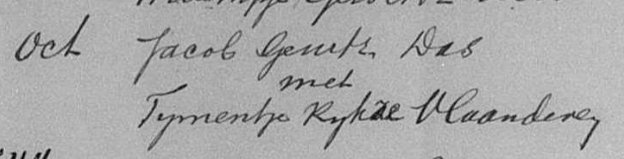 Oct Jacob Geurtz Das
met
Tymentje Rykze Vlaanderen